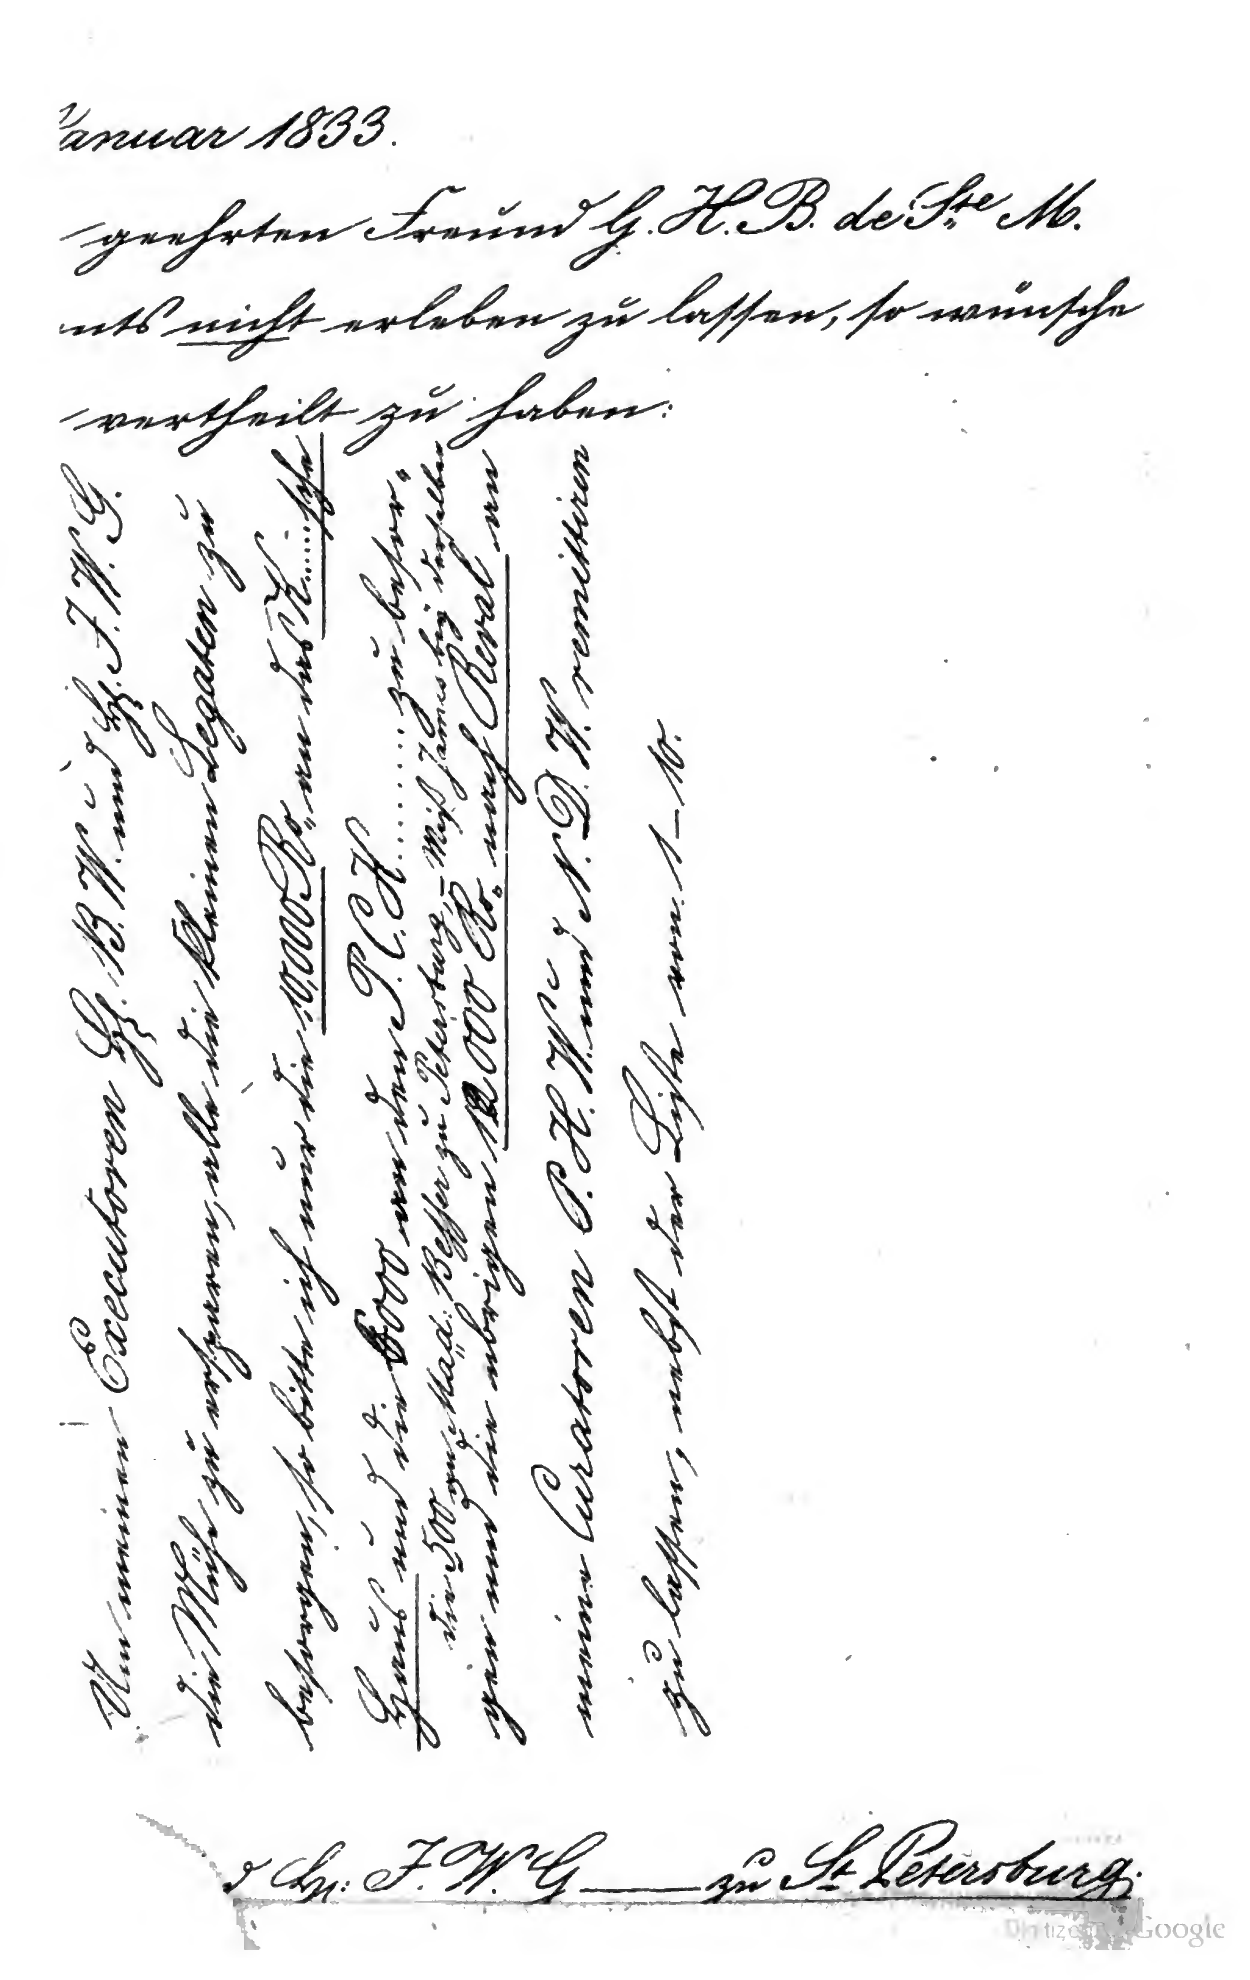 Januar 1833.
geehrten Freund G. H. B. de Ste M.
nts nicht erleben zu lassen, so wünsche
vertheilt zu haben:
Um meinen Executoren Hh. B. W. und Hh. F. W. G.
die Mühe zu ersparen, alle die kleinen Legaten zu
besorgen, so bitte ich nur die 10,000 Ro. an das K......sche
Haus und die 5000 an den P. C. K........ zu besor-
die 500 an Mad: Besser zu Petersburg, = Miß James bey derselben
gen und die übrigen 12000 Ro. nach Reval an
meine Curatoren P. H. W. und N. D. W. remittiren
zu lassen, nebst der Liste von 1–10.
d Hn: F. W. G——— zu St. Petersburg.
Digitized by Google